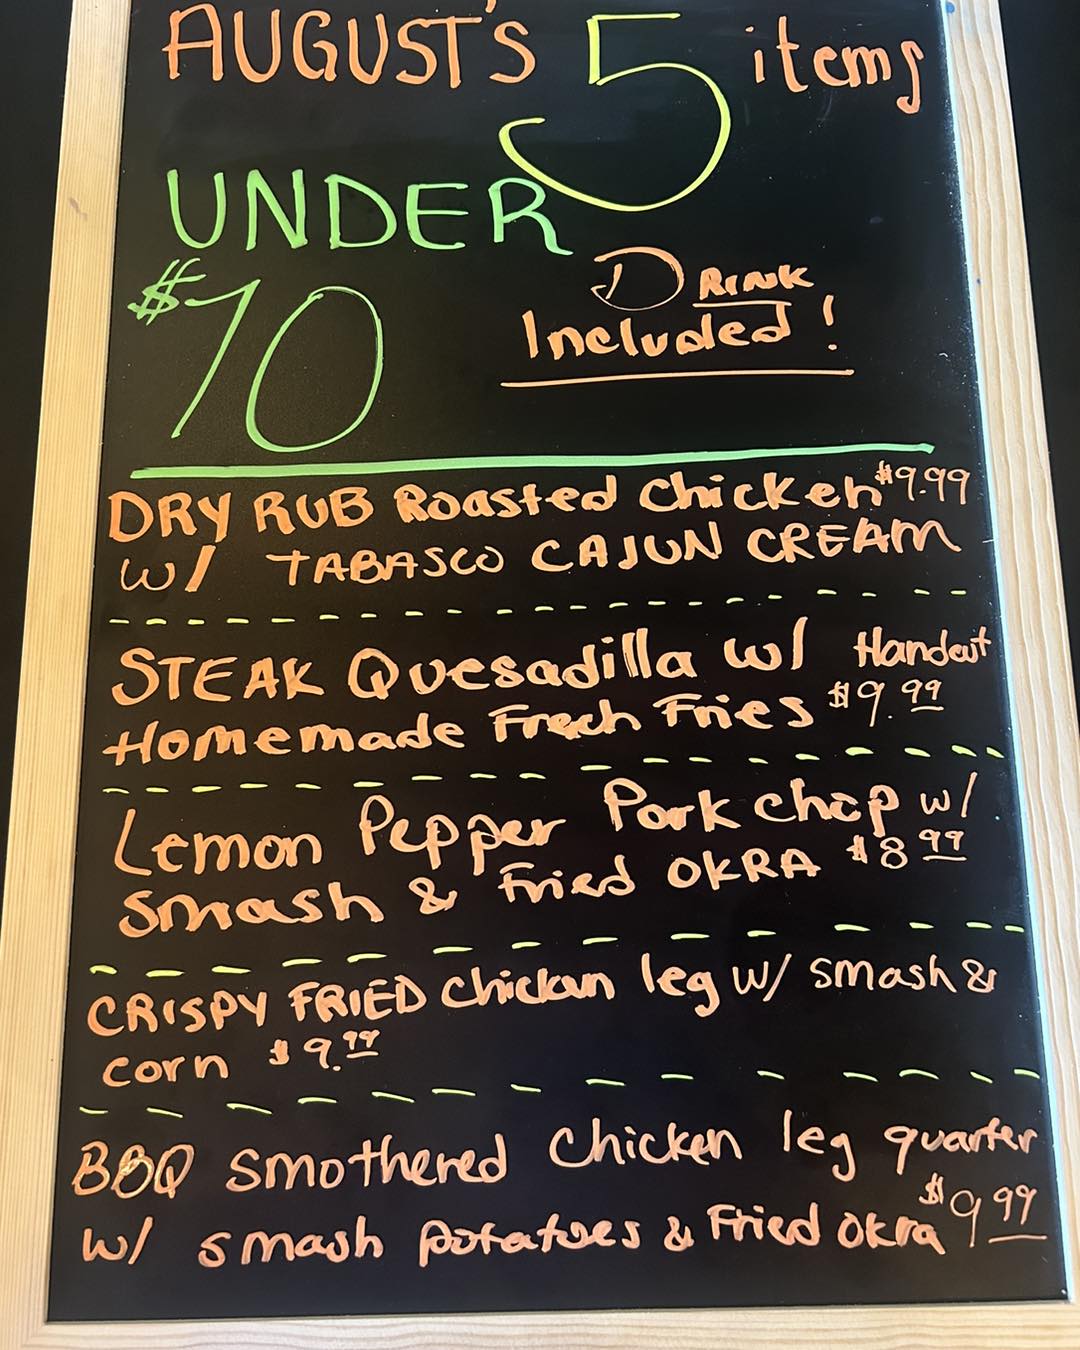 AUGUST'S 5 items
UNDER
$10
DRINK
Included!
DRY RUB Roasted Chicken $9.99
w/ TABASCO CAJUN CREAM
STEAK Quesadilla w/ Handcut
Homemade Fresh Fries $9.99
Lemon Pepper Pork chop w/
smash & Fried OKRA $8.99
CRISPY FRIED Chicken leg w/ smash &
corn $9.99
BBQ smothered Chicken leg quarter
w/ smash potatoes & Fried okra $9.99